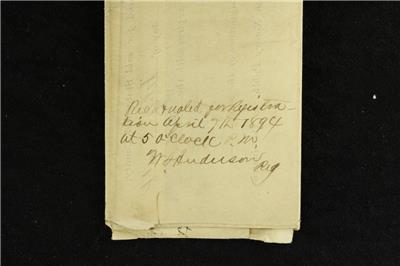 Rec'd & noted for Registra-
tion April 7th 1894
at 5 o'clock P.M.
W J Anderson
Reg